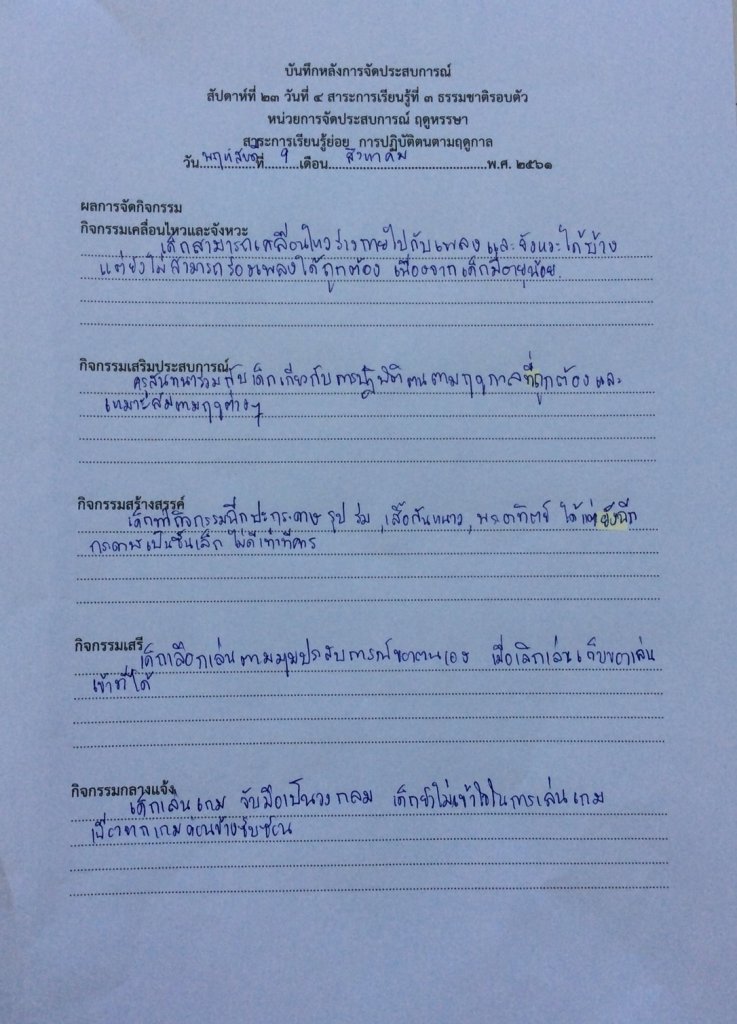 บันทึกหลังการจัดประสบการณ์
สัปดาห์ที่ ๒๓ วันที่ ๔ สาระการเรียนรู้ที่ ๓ ธรรมชาติรอบตัว
หน่วยการจัดประสบการณ์ ฤดูหรรษา
สาระการเรียนรู้ย่อย การปฏิบัติตนตามฤดูกาล
วัน พฤหัสบดี ที่ 9 เดือน สิงหาคม พ.ศ. ๒๕๖๑
ผลการจัดกิจกรรม
กิจกรรมเคลื่อนไหวและจังหวะ
เด็กสามารถเคลื่อนไหวร่างกายไปกับเพลง และจังหวะได้บ้าง
แต่ยังไม่สามารถร้องเพลงได้ถูกต้อง เนื่องจากเด็กมีอายุน้อย.
กิจกรรมเสริมประสบการณ์
ครูสนทนาร่วมกับเด็กเกี่ยวกับการปฏิบัติตนตามฤดูกาลที่ถูกต้อง และ
เหมาะสมตามฤดูต่างๆ
กิจกรรมสร้างสรรค์
เด็กทำกิจกรรมฉีกปะกระดาษ รูป ร่ม , เสื้อกันหนาว , พระอาทิตย์ ได้แต่ยังฉีก
กระดาษเป็นชิ้นเล็ก ไม่ดีเท่าที่ควร
กิจกรรมเสรี
เด็กเลือกเล่นตามมุมประสบการณ์ของตนเอง เมื่อเลิกเล่นเก็บของเล่น
เข้าที่ได้
กิจกรรมกลางแจ้ง
เด็กเล่นเกม จับมือเป็นวงกลม เด็กยังไม่เข้าใจในการเล่นเกม
เนื่องจากเกมค่อนข้างซับซ้อน